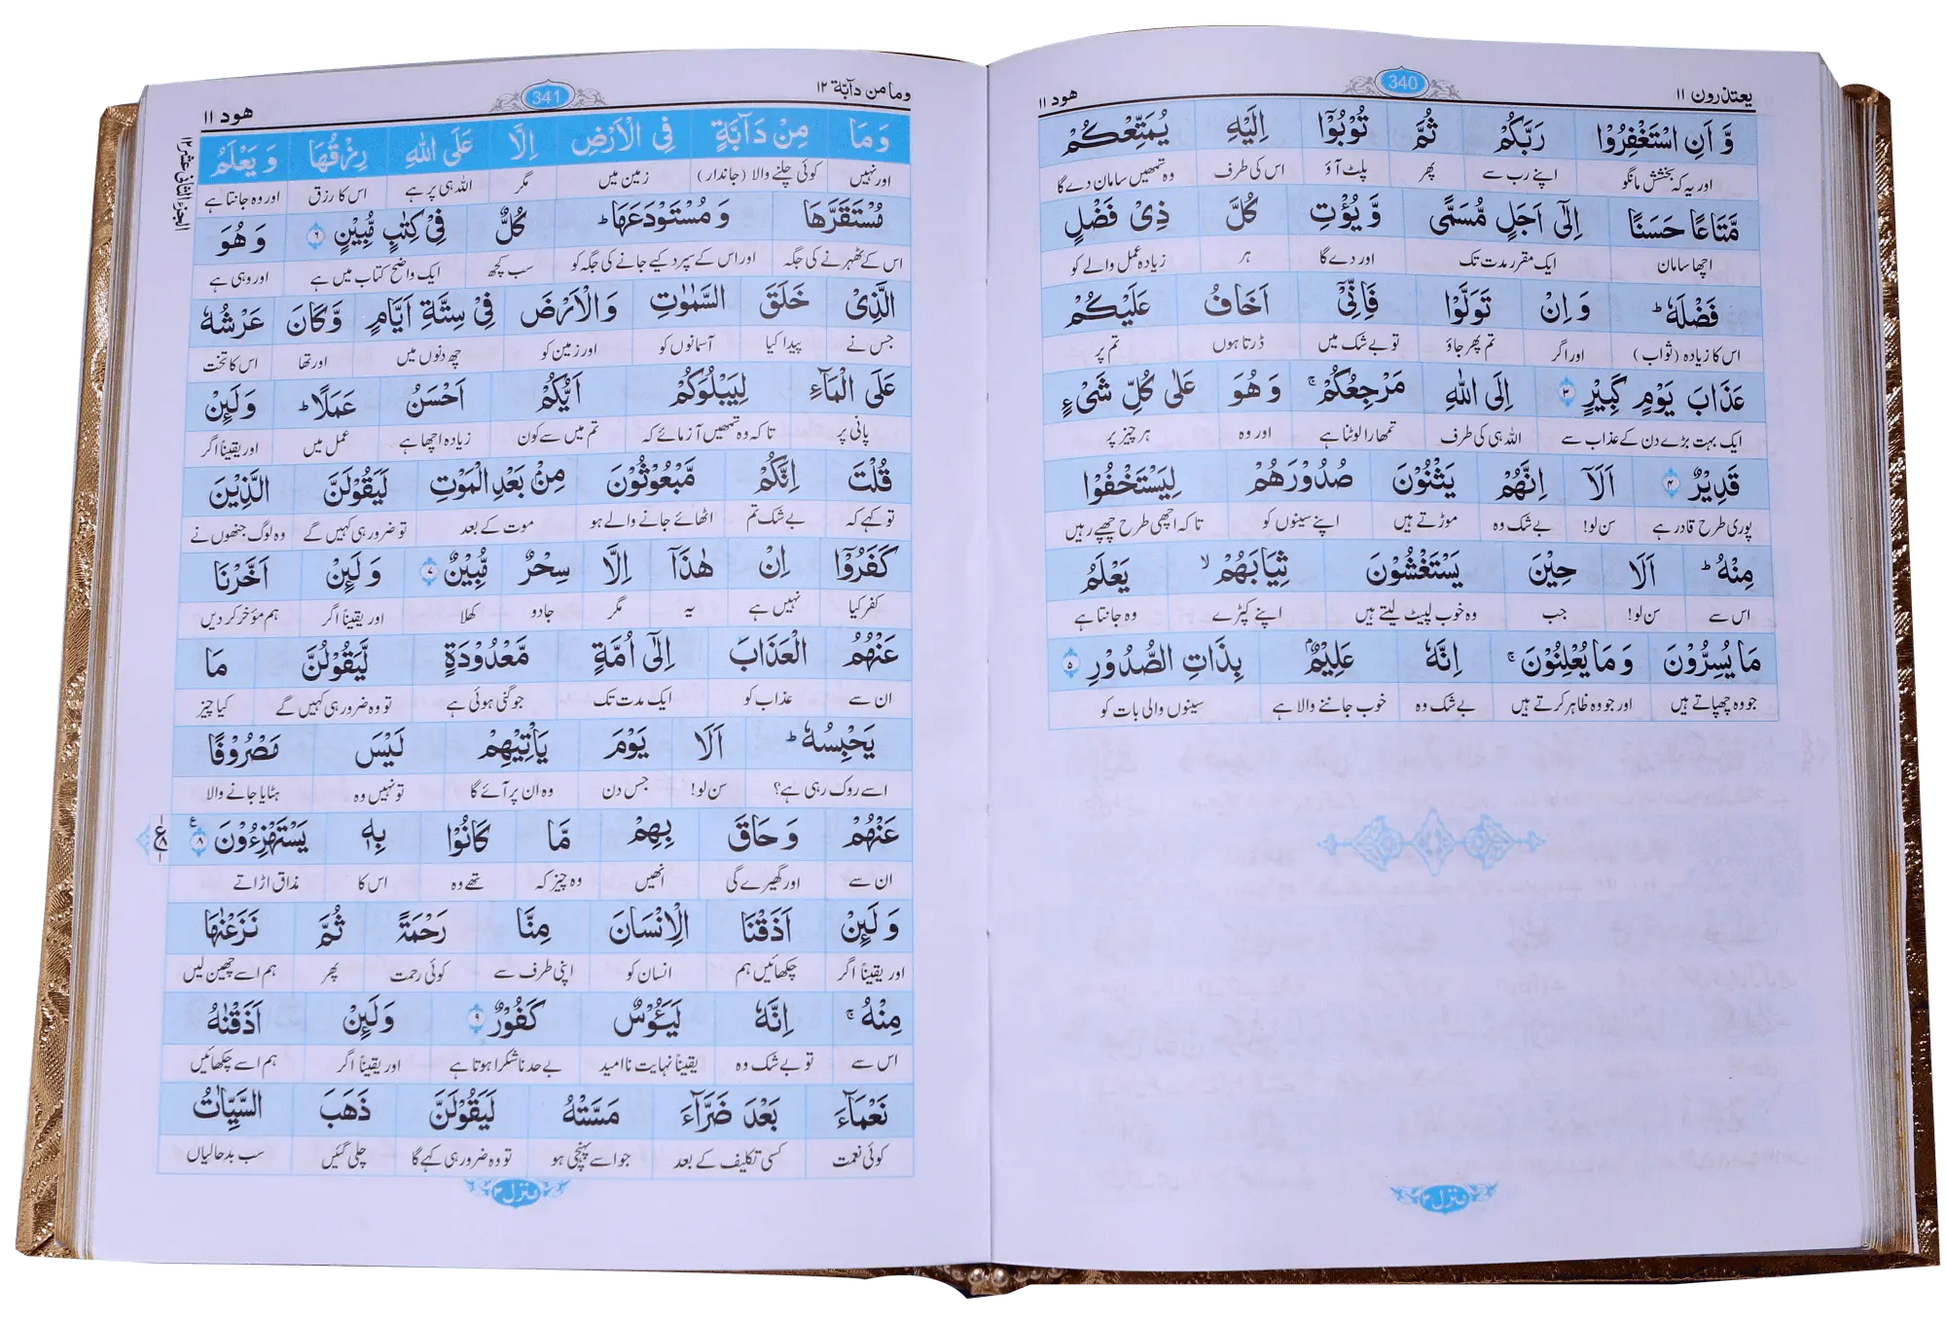 یعتذرون ۱۱
340
هود ۱۱
وَّ اَنِ اسْتَغْفِرُوْا رَبَّكُمْ ثُمَّ تُوْبُوْۤا اِلَیْهِ یُمَتِّعْكُمْ
اور یہ کہ بخشش مانگو اپنے رب سے پھر پلٹ آؤ اس کی طرف وہ تمھیں سامان دے گا
مَّتَاعًا حَسَنًا اِلٰۤی اَجَلٍ مُّسَمًّی وَّ یُؤْتِ كُلَّ ذِیْ فَضْلٍ
اچھا سامان ایک مقرر مدت تک اور دے گا ہر زیادہ عمل والے کو
فَضْلَهٗ ؕ وَ اِنْ تَوَلَّوْا فَاِنِّیْۤ اَخَافُ عَلَیْكُمْ
اس کا زیادہ (ثواب) اور اگر تم پھر جاؤ تو بے شک میں ڈرتا ہوں تم پر
عَذَابَ یَوْمٍ كَبِیْرٍ ۳ اِلَی اللّٰهِ مَرْجِعُكُمْ ۚ وَ هُوَ عَلٰی كُلِّ شَیْءٍ
ایک بہت بڑے دن کے عذاب سے اللہ ہی کی طرف تمھارا لوٹنا ہے اور وہ ہر چیز پر
قَدِیْرٌ ۴ اَلَاۤ اِنَّهُمْ یَثْنُوْنَ صُدُوْرَهُمْ لِیَسْتَخْفُوْا
پوری طرح قادر ہے سن لو! بے شک وہ موڑتے ہیں اپنے سینوں کو تاکہ اچھی طرح چھپے رہیں
مِنْهُ ؕ اَلَا حِیْنَ یَسْتَغْشُوْنَ ثِیَابَهُمْ ۙ یَعْلَمُ
اس سے سن لو! جب وہ خوب لپیٹ لیتے ہیں اپنے کپڑے وہ جانتا ہے
مَا یُسِرُّوْنَ وَ مَا یُعْلِنُوْنَ ۚ اِنَّهٗ عَلِیْمٌۢ بِذَاتِ الصُّدُوْرِ ۵
جو وہ چھپاتے ہیں اور جو وہ ظاہر کرتے ہیں بے شک وہ خوب جاننے والا ہے سینوں والی بات کو
منزل ۳
وما من دآبّة ۱۲
341
هود ۱۱
الجزء الثانی عشر ۱۲
وَ مَا مِنْ دَآبَّةٍ فِی الْاَرْضِ اِلَّا عَلَی اللّٰهِ رِزْقُهَا وَ یَعْلَمُ
اور نہیں کوئی چلنے والا (جاندار) زمین میں مگر اللہ ہی پر ہے اس کا رزق اور وہ جانتا ہے
مُسْتَقَرَّهَا وَ مُسْتَوْدَعَهَا ؕ كُلٌّ فِیْ كِتٰبٍ مُّبِیْنٍ ۶ وَ هُوَ
اس کے ٹھہرنے کی جگہ اور اس کے سپرد کیے جانے کی جگہ کو سب کچھ ایک واضح کتاب میں ہے اور وہی ہے
الَّذِیْ خَلَقَ السَّمٰوٰتِ وَ الْاَرْضَ فِیْ سِتَّةِ اَیَّامٍ وَّ كَانَ عَرْشُهٗ
جس نے پیدا کیا آسمانوں کو اور زمین کو چھ دنوں میں اور تھا اس کا تخت
عَلَی الْمَآءِ لِیَبْلُوَكُمْ اَیُّكُمْ اَحْسَنُ عَمَلًا ؕ وَ لَىِٕنْ
پانی پر تاکہ وہ تمھیں آزمائے کہ تم میں سے کون زیادہ اچھا ہے عمل میں اور یقیناً اگر
قُلْتَ اِنَّكُمْ مَّبْعُوْثُوْنَ مِنْۢ بَعْدِ الْمَوْتِ لَیَقُوْلَنَّ الَّذِیْنَ
تو کہے کہ بے شک تم اٹھائے جانے والے ہو موت کے بعد تو ضرور ہی کہیں گے وہ لوگ جنھوں نے
كَفَرُوْۤا اِنْ هٰذَاۤ اِلَّا سِحْرٌ مُّبِیْنٌ ۷ وَ لَىِٕنْ اَخَّرْنَا
کفر کیا نہیں ہے یہ مگر جادو کھلا اور یقیناً اگر ہم مؤخر کر دیں
عَنْهُمُ الْعَذَابَ اِلٰۤی اُمَّةٍ مَّعْدُوْدَةٍ لَّیَقُوْلُنَّ مَا
ان سے عذاب کو ایک مدت تک جو گنی ہوئی ہے تو وہ ضرور ہی کہیں گے کیا چیز
یَحْبِسُهٗ ؕ اَلَا یَوْمَ یَاْتِیْهِمْ لَیْسَ مَصْرُوْفًا
اسے روک رہی ہے؟ سن لو! جس دن وہ ان پر آئے گا تو نہیں وہ ہٹایا جانے والا
عَنْهُمْ وَ حَاقَ بِهِمْ مَّا كَانُوْا بِهٖ یَسْتَهْزِءُوْنَ ۸ ع
ان سے اور گھیرے گی انھیں وہ چیز کہ تھے وہ اس کا مذاق اڑاتے
وَ لَىِٕنْ اَذَقْنَا الْاِنْسَانَ مِنَّا رَحْمَةً ثُمَّ نَزَعْنٰهَا
اور یقیناً اگر چکھائیں ہم انسان کو اپنی طرف سے کوئی رحمت پھر ہم اسے چھین لیں
مِنْهُ ۚ اِنَّهٗ لَیَـُٔوْسٌ كَفُوْرٌ ۹ وَ لَىِٕنْ اَذَقْنٰهُ
اس سے تو بے شک وہ یقیناً نہایت ناامید بے حد ناشکرا ہوتا ہے اور یقیناً اگر ہم اسے چکھائیں
نَعْمَآءَ بَعْدَ ضَرَّآءَ مَسَّتْهُ لَیَقُوْلَنَّ ذَهَبَ السَّیِّاٰتُ
کوئی نعمت کسی تکلیف کے بعد جو اسے پہنچی ہو تو وہ ضرور ہی کہے گا چلی گئیں سب بدحالیاں
منزل ۳